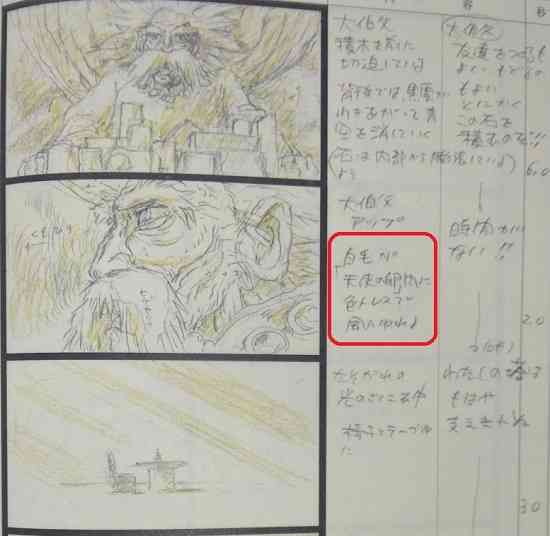 大伯父
積木を前に
切迫している
背後では、黒雲が
わきあがって青
空を消していく
(石は内部から膨張しているよう)
大伯父
友達をつくるも
よい もどるの
もよい
とにかく
この石を
積むのだ!!
6.0
大伯父
アップ
白毛が
天使の
色トレスで
風にゆれる
時間がい
ない!!
2.0
たそがれの
光のさしこむ中
椅子とテーブルの
わたしの塔は
もはや
支えきれぬ
3.0